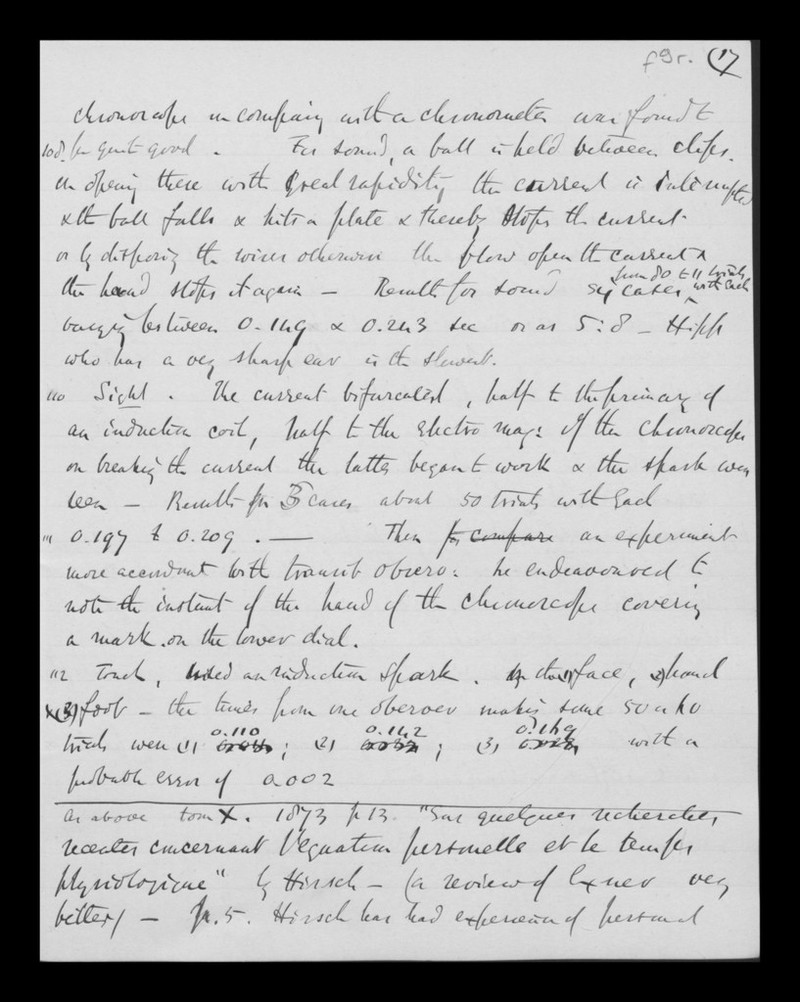 f9r. 17
chronoscope in company with a chronometer was found to
108. be quite good. For sound, a ball is held between clips.
On opening these with great rapidity the current is interrupted
& the ball falls & hits a plate & thereby stops the current
or by disposing the wires otherwise the blow opens the current &
the hand stops it again — Results for sound 54 cases from 80 to 11 trials with each
varying between 0.149 & 0.243 sec or as 5:8 — Hipp
who has a very sharp ear is the slowest.
110 Sight. The current bifurcated, half to the primary of
an induction coil, half to the Electro mag: of the Chronoscope
on breaking the current the latter began to work & the spark was
seen — Results for 3 cases about 50 trials with each
111 0.197 to 0.209. — Then for compare an experiment
more accordant with transit observ: he endeavoured to
note the instant of the hand of the Chronoscope covering
a mark on the lower dial.
112 Touch, used an induction spark. on the (1) face, (2) hand
& (3) foot — the times from one observer making some 50 a 60
trials were (1) 0.110; (2) 0.142; (3) 0.169 with a
probable error of 0.002
As above tom X. 1873 p 13. "Sur quelques recherches
recentes concernant l'equation personelle et le temps
physiologique" by Hirsch — (a review of Exner very
bitter) — p. 5. Hirsch has had experience of personal